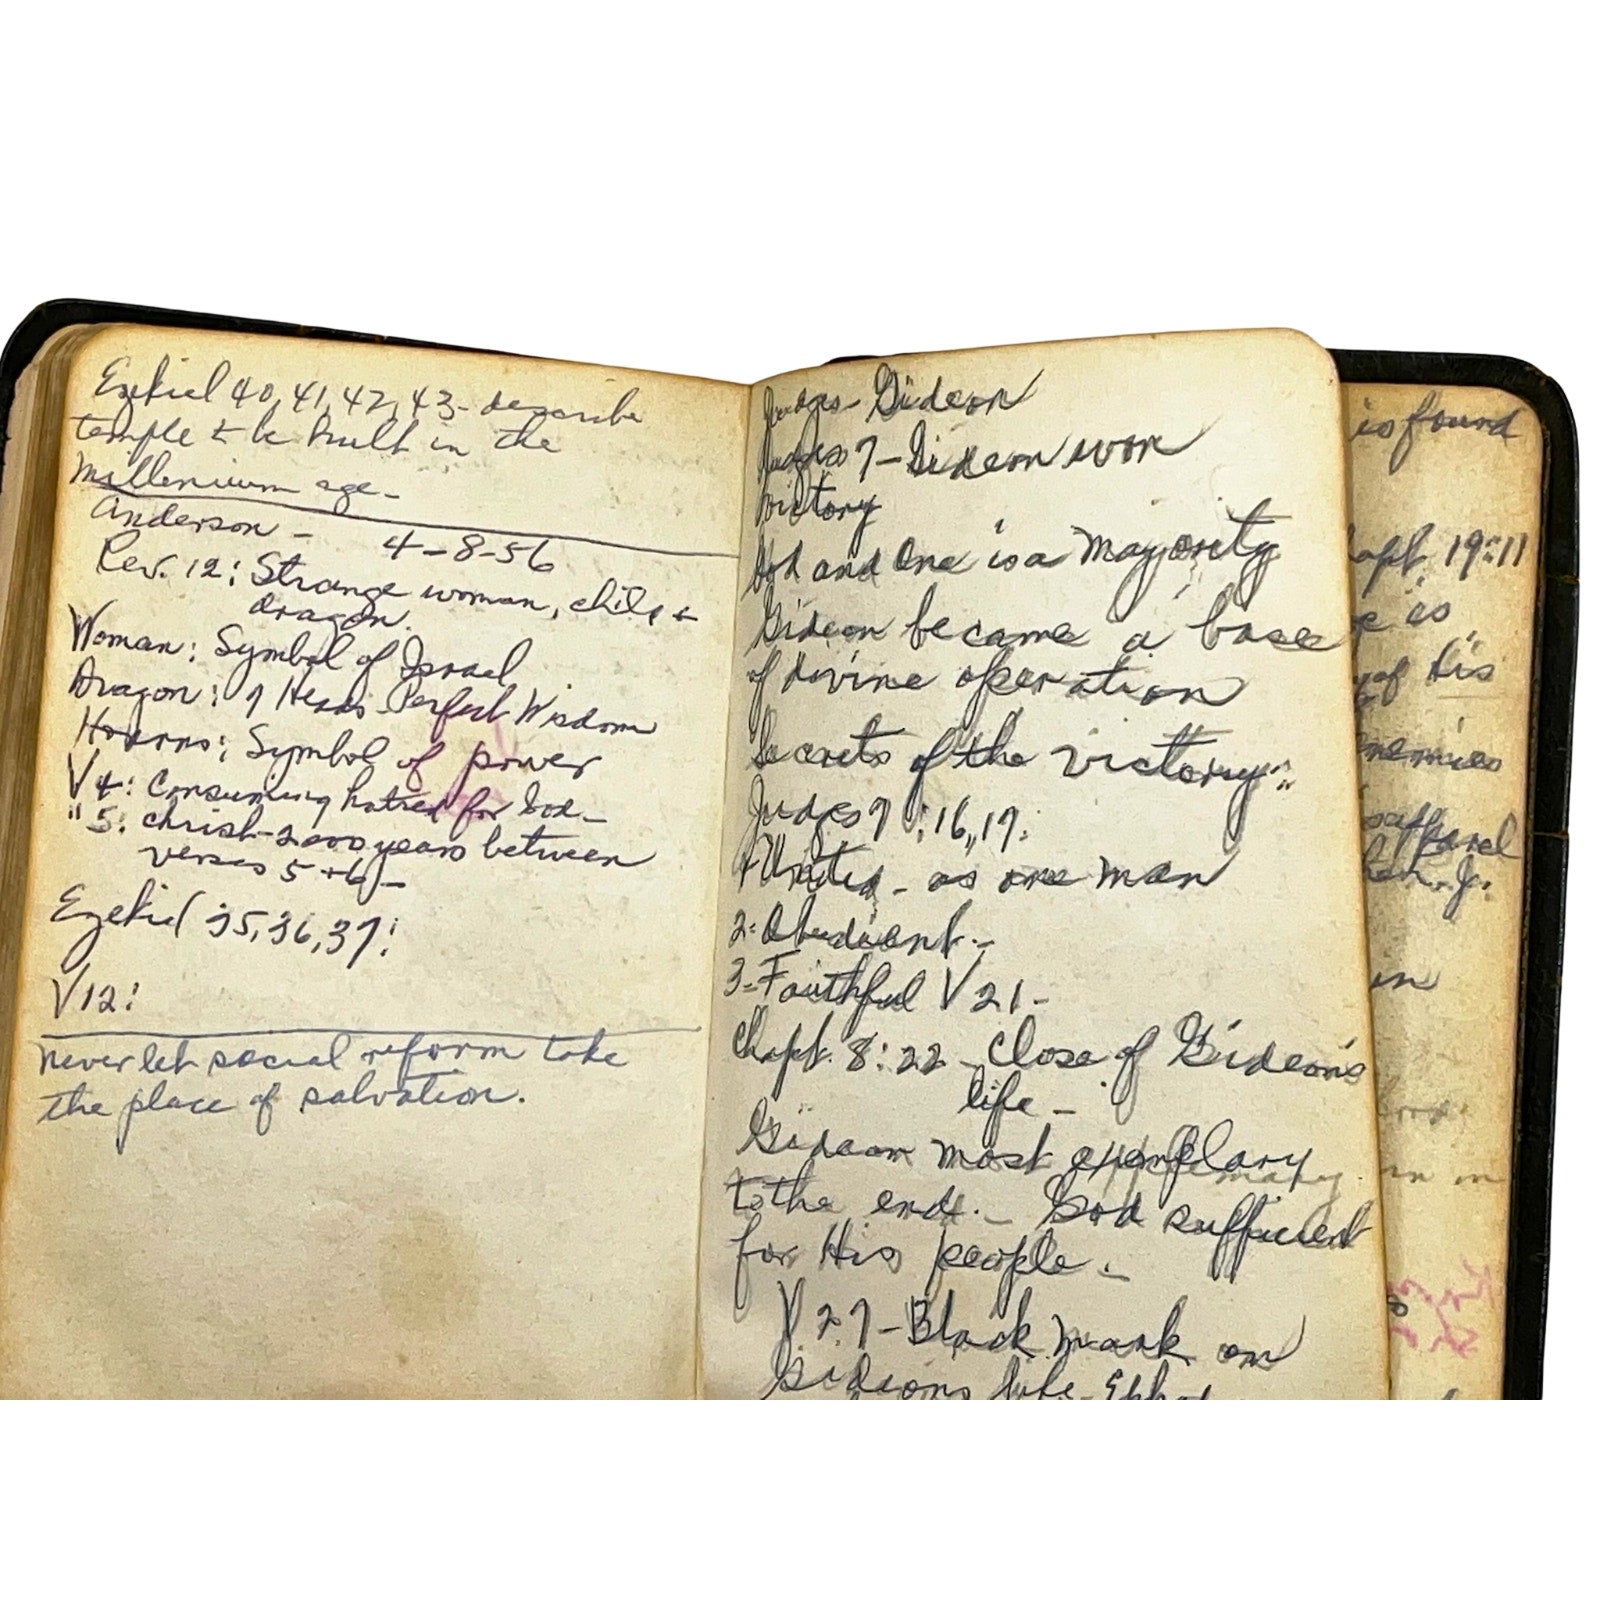 Ezekiel 40, 41, 42, 43 - describe
temple to be built in the
Millenium age -
Anderson - 4-8-56
Rev. 12: Strange woman, child +
dragon.
Woman: Symbol of Israel
Dragon: 7 Heads - Perfect Wisdom
Hoarns: Symbol of power
V 4: Consuming hatred for God -
" 5: Christ - 2000 years between
verses 5 + 6 -
Ezekiel 35, 36, 37:
V 12:
Never let social reform take
the place of salvation.
Judges - Gideon
Judges 7 - Gideon won
victory
God and One is a Majority
Gideon became a base
of divine operation
Secrets of the victory:
Judges 7:16, 17:
1 United - as one man
2 - Obediant -
3 - Faithful V 21 -
Chapt. 8:22 - Close of Gideon's
life -
Gideon most exemplary
to the end. - God sufficient
for His people -
V 27 - Black mark on
Gideons life -
is found
19:11
is
of His
enemies
apparel
in
in